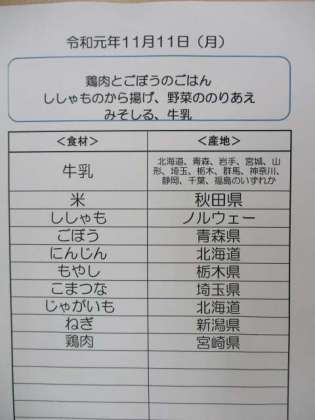 令和元年11月11日（月）
鶏肉とごぼうのごはん
ししゃものから揚げ、野菜ののりあえ
みそしる、牛乳
＜食材＞ ＜産地＞
牛乳 北海道、青森、岩手、宮城、山
形、埼玉、栃木、群馬、神奈川、
静岡、千葉、福島のいずれか
米 秋田県
ししゃも ノルウェー
ごぼう 青森県
にんじん 北海道
もやし 栃木県
こまつな 埼玉県
じゃがいも 北海道
ねぎ 新潟県
鶏肉 宮崎県